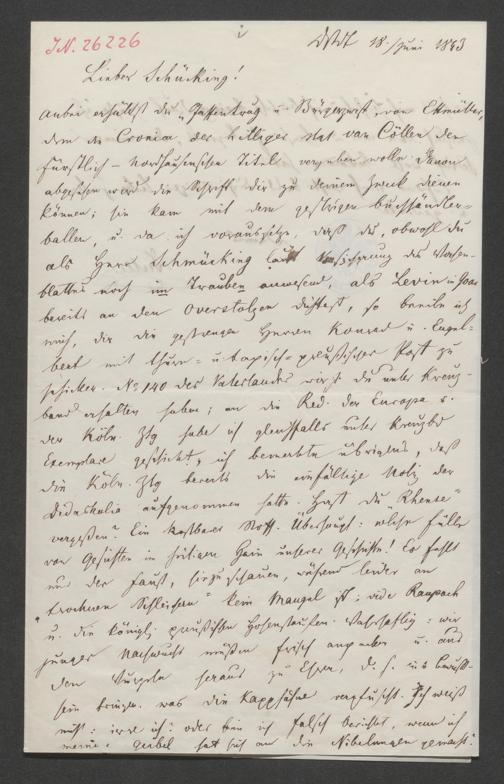 J.N. 26226
Dstdt 18. Juni 1843
Lieber Schücking!
Anbei erhältst du „ u. Bürgerzwist" von Ettmüller,
dem die Cronica der hilliger Stat van Cöllen den
fürstlich - nordhausenschen Titel wollen. Davon
abgesehen wird die Schrift dir zu deinem Zweck dienen
können; sie kam mit dem gestrigen Buchhändler-
ballen, u. da ich voraussetze, daß du, obwohl du
als Herr Schmücking laut Versicherung des Wochen-
blattes noch im Trauben anwesend, als Levin u.
bereits an den Overstolzen dichtest, so beeile ich
mich, dir die gestrengen Herren Konrad u. Engel-
bert mit thurn- u. taxisch-preußischer Post zu
schicken. No 140 des Vaterlandes wirst du unter Kreuz-
band erhalten haben; an die Red. der Europa u.
der Köln. Ztg habe ich gleichfalls unter Kreuzbd
Exemplare geschickt, ich bemerkte übrigens, daß
die Köln. Ztg bereits die einfältige Notiz der
Didaskalia aufgenommen hatte. Hast du „Rhense"
vergessen? Ein kostbarer Stoff. Überhaupt: welche Fülle
von Gedichten im heiligen Hain unserer Geschichte! Es fehlt
nur der Faust, hinzuschauen, während leider an
„trocknen Schleichern" kein Mangel ist; vide Raupach
u. die königl. preußischen Hohenstaufen. Wahrhaftig: wir
junger Nachwuchs müssen frisch angreifen u. aus
den heraus zu Ehren, d. h. ins Bewußt-
sein bringen, was die verpfuscht. Ich weiß
nicht: irre ich oder bin ich falsch berichtet, wenn ich
meine: Geibel hat sich an die Nibelungen gemacht?